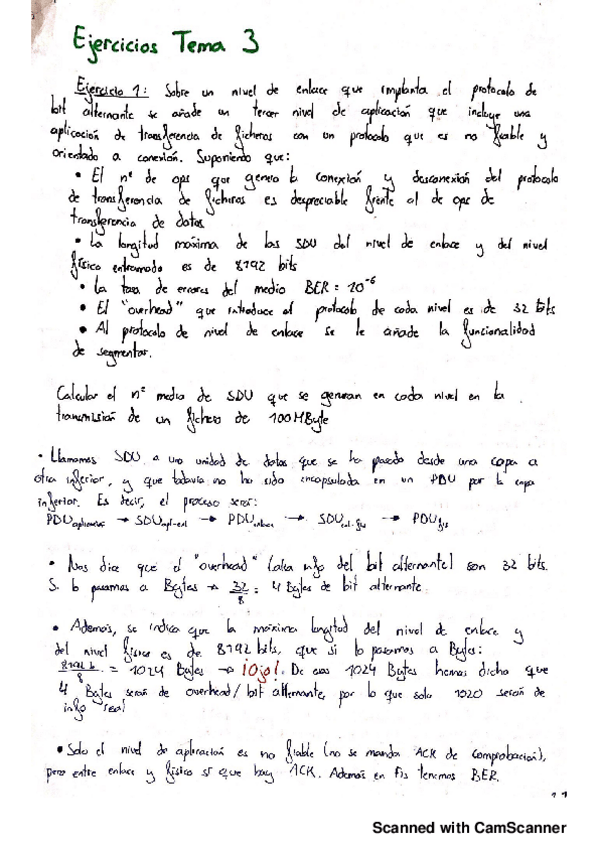 Ejercicios Tema 3
Ejercicio 1: Sobre un nivel de enlace que implanta el protocolo de
bit alternante se añade un tercer nivel de aplicación que incluye una
aplicación de transferencia de ficheros con un protocolo que es no fiable y
orientado a conexión. Suponiendo que:
• El nº de ops que genera la conexión y desconexión del protocolo
de transferencia de ficheros es despreciable frente al de ops de
transferencia de datos
• La longitud máxima de las SDU del nivel de enlace y del nivel
físico entramado es de 8192 bits
• La tasa de errores del medio BER = 10⁻⁶
• El "overhead" que introduce el protocolo de cada nivel es de 32 bits
• Al protocolo de nivel de enlace se le añade la funcionalidad
de segmentar.
Calcular el nº medio de SDU que se generan en cada nivel en la
transmisión de un fichero de 100 MByte
• Llamamos SDU a una unidad de datos que se ha pasado desde una capa a
otra inferior, y que todavía no ha sido encapsulada en un PDU por la capa
inferior. Es decir, el proceso será:
PDU aplicación → SDU apl-enl → PDU enlace → SDU enl-fis → PDU fis
• Nos dice que el "overhead" (aka info del bit alternante) son 32 bits.
Si lo pasamos a Bytes → 32/8 = 4 Bytes de bit alternante.
• Además, se indica que la máxima longitud del nivel de enlace y
del nivel físico es de 8192 bits, que si lo pasamos a Bytes:
8192 b/8 = 1024 Bytes → ¡Ojo!. De esos 1024 Bytes hemos dicho que
4 Bytes serán de overhead/bit alternante, por lo que solo 1020 serán de
info real
• Solo el nivel de aplicación es no fiable (no se manda ACK de comprobación),
pero entre enlace y físico sí que hay ACK. Además en fis tenemos BER.
Scanned with CamScanner